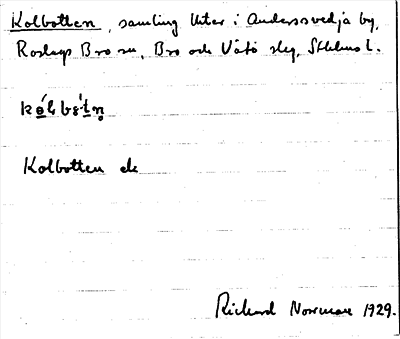 Kolbotten, samling hus i Anderssvedja by,
Roslags Bro sn, Bro och Vätö slg, Sthlms l.
Kolbotten
Richard Norrman 1929.